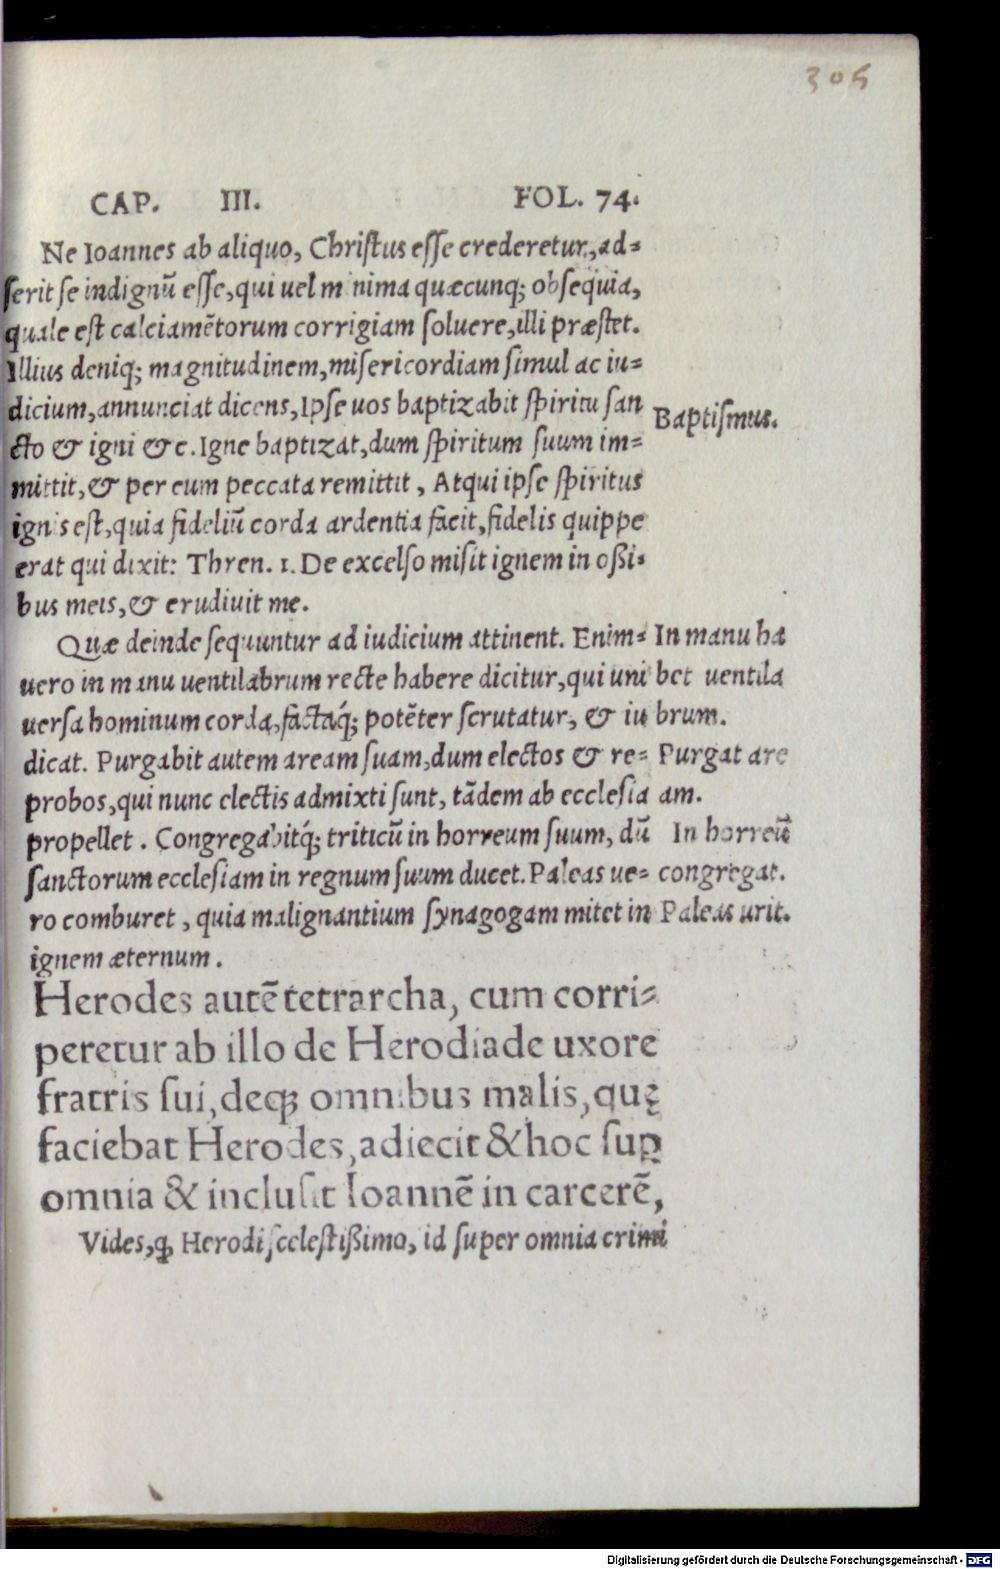 305
CAP. III. FOL. 74.
Ne Ioannes ab aliquo, Christus esse crederetur, ad-
serit se indignū esse, qui uel minima quæcunq; obsequia,
quale est calciamētorum corrigiam soluere, illi præstet.
Illius deniq; magnitudinem, misericordiam simul ac iu-
dicium, annunciat dicens, Ipse uos baptizabit spiritu san
cto & igni &c. Igne baptizat, dum spiritum suum im-
mittit, & per eum peccata remittit, Atqui ipse spiritus
ignis est, quia fideliū corda ardentia facit, fidelis quippe
erat qui dixit: Thren. 1. De excelso misit ignem in ossi-
bus meis, & erudiuit me.
Baptismus.
Quæ deinde sequuntur ad iudicium attinent. Enim-
uero in manu uentilabrum recte habere dicitur, qui uni
uersa hominum corda, factaq́; potēter scrutatur, & iu
dicat. Purgabit autem aream suam, dum electos & re-
probos, qui nunc electis admixti sunt, tādem ab ecclesia
propellet. Congregabitq́; triticū in horreum suum, dū
sanctorum ecclesiam in regnum suum ducet. Paleas ue-
ro comburet, quia malignantium synagogam mitet in
ignem æternum.
In manu ha
bet uentila
brum.
Purgat are
am.
In horreū
congregat.
Paleas urit.
Herodes autē tetrarcha, cum corri-
peretur ab illo de Herodiade uxore
fratris sui, deq; omnibus malis, quę
faciebat Herodes, adiecit & hoc suꝑ
omnia & inclusit Ioannē in carcerē,
Vides, ꝙ Herodi scelestissimo, id super omnia crimi
Digitalisierung gefördert durch die Deutsche Forschungsgemeinschaft - DFG